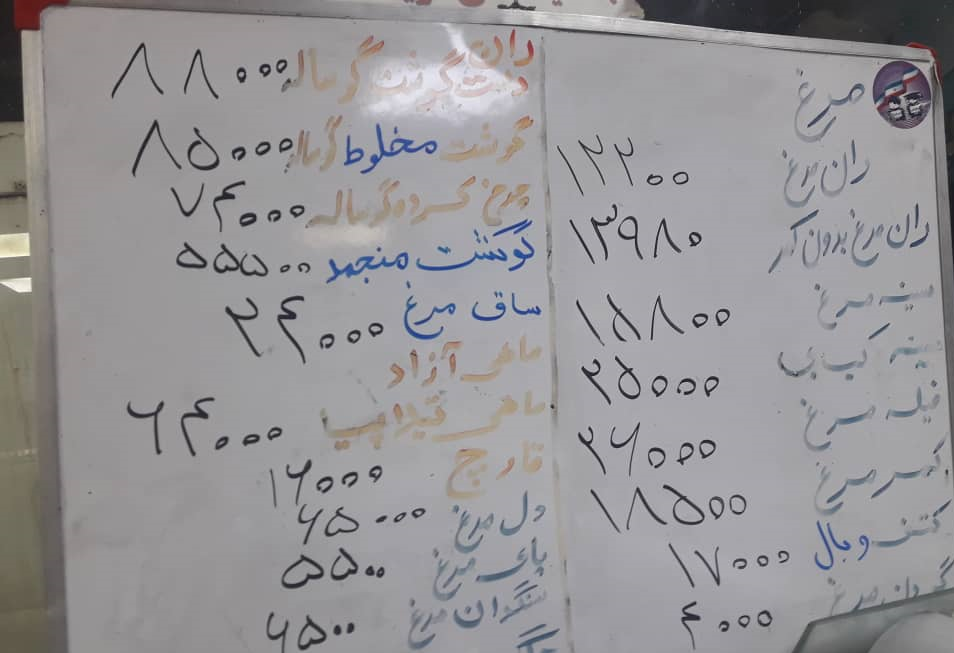 مرغ
ران مرغ ۱۲۲۰۰
ران مرغ بدون کمر ۱۳۹۸۰
سینه مرغ ۱۸۸۰۰
سینه کبابی ۲۵۰۰۰
فیله مرغ ۲۶۰۰۰
مرغ ۱۸۵۰۰
کتف و بال ۱۷۰۰۰
گردن مرغ ۴۰۰۰
ران
دست گوشت گوساله ۸۸۰۰۰
گوشت مخلوط گوساله ۸۵۰۰۰
چرخ کرده گوساله ۷۴۰۰۰
گوشت منجمد ۵۵۵۰۰
ساق مرغ ۲۴۰۰۰
ماهی آزاد
ماهی تیلاپیا ۶۴۰۰۰
قارچ ۱۶۰۰۰
دل مرغ ۶۵۰۰۰
پای مرغ ۵۵۰۰
سنگدان مرغ ۶۵۰۰